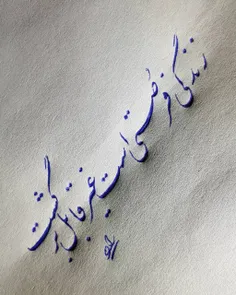 زندگی فرصتی است غیر قابل برگشت